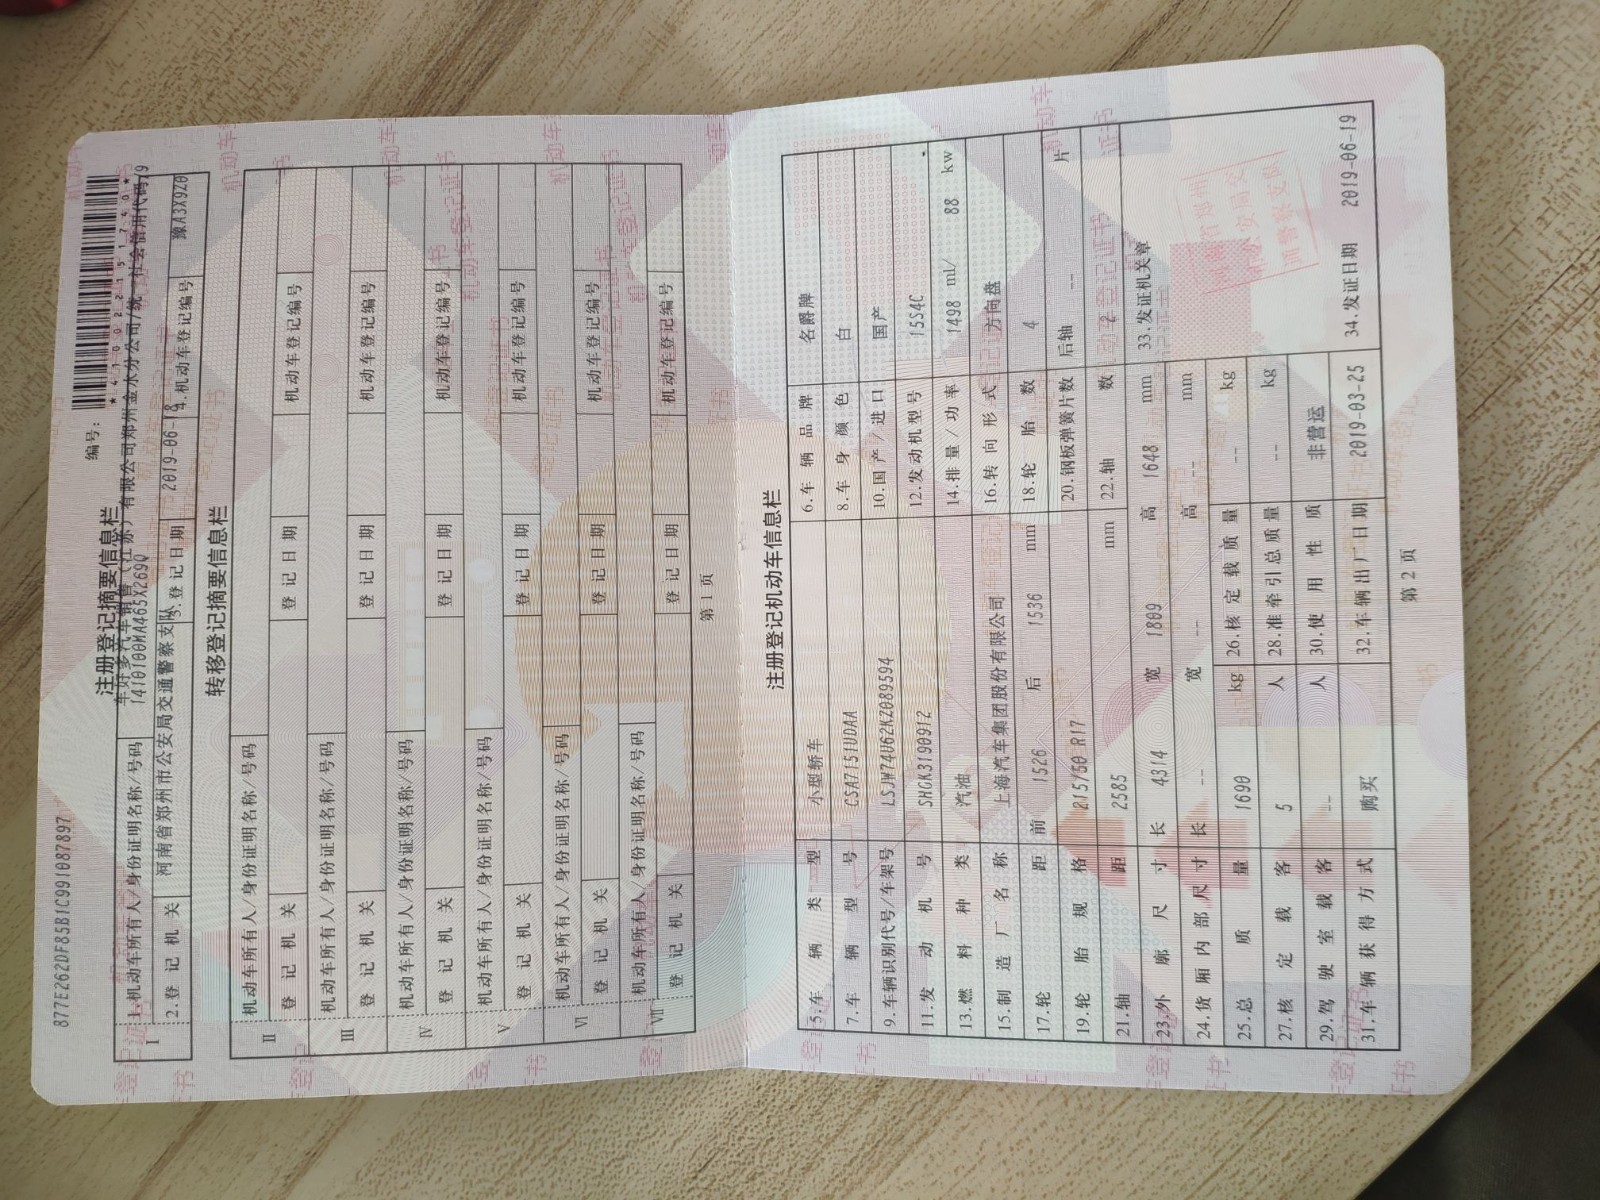 877E262DF85B1C991087897
编号：
*410022151740*
注册登记摘要信息栏
Ⅰ
1.机动车所有人/身份证明名称/号码
车好多汽车销售（江苏）有限公司郑州金水分公司/统一社会信用代码/9
1410100MA465X269Q
2.登记机关 河南省郑州市公安局交通警察支队 3.登记日期 2019-06-18 4.机动车登记编号 豫A3X9Z0
转移登记摘要信息栏
Ⅱ
机动车所有人/身份证明名称/号码
登记机关 登记日期 机动车登记编号
Ⅲ
机动车所有人/身份证明名称/号码
登记机关 登记日期 机动车登记编号
Ⅳ
机动车所有人/身份证明名称/号码
登记机关 登记日期 机动车登记编号
Ⅴ
机动车所有人/身份证明名称/号码
登记机关 登记日期 机动车登记编号
Ⅵ
机动车所有人/身份证明名称/号码
登记机关 登记日期 机动车登记编号
Ⅶ
机动车所有人/身份证明名称/号码
登记机关 登记日期 机动车登记编号
第 1 页
注册登记机动车信息栏
5.车辆类型 小型轿车 6.车辆品牌 名爵牌
7.车辆型号 CSA7151UDAA 8.车身颜色 白
9.车辆识别代号/车架号 LSJW74U62KZ089594 10.国产/进口 国产
11.发动机号 SHGK3190912 12.发动机型号 15S4C
13.燃料种类 汽油 14.排量/功率 1498 ml/ 88 kw
15.制造厂名称 上海汽车集团股份有限公司 16.转向形式 方向盘
17.轮距 前 1526 后 1536 mm 18.轮胎数 4
19.轮胎规格 215/50 R17 20.钢板弹簧片数 后轴 -- 片
21.轴距 2585 mm 22.轴数 2
23.外廓尺寸 长 4314 宽 1809 高 1648 mm 33.发证机关章
24.货厢内部尺寸 长 -- 宽 -- 高 -- mm
25.总质量 1690 kg 26.核定载质量 -- kg
27.核定载客 5 人 28.准牵引总质量 -- kg
29.驾驶室载客 -- 人 30.使用性质 非营运
31.车辆获得方式 购买 32.车辆出厂日期 2019-03-25 34.发证日期 2019-06-19
第 2 页